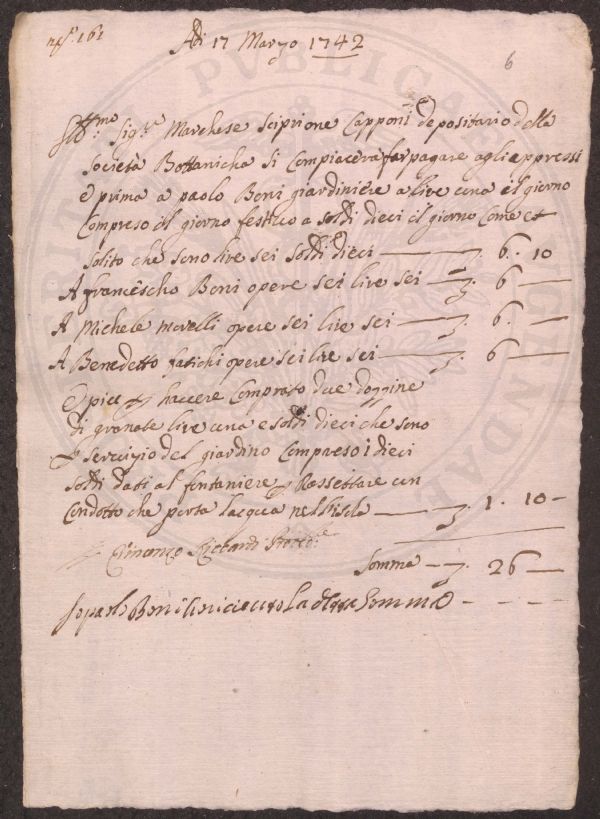 n.º 161
Adi 17 Marzo 1742
6
Ill.mo Sig.re Marchese Scipione Capponi depositario della
Società Bottanicha si Compiacera far pagare agli appressi
e prima a paolo Boni giardiniere a lire una il giorno
Compreso il giorno festivo a soldi dieci il giorno Come et
solito che sono lire sei soldi dieci — 6. 10
A francescho Boni opere sei lire sei — 6 —
A Michele morelli opere sei lire sei — 6. —
A Benedetto fatichi opere sei lire sei — 6 —
E piu haccere Comprato due doggine
di granate lire una e soldi dieci che sono
servizio del giardino Compreso i dieci
soldi dati al fontaniere Rassettare un
Condotto che porta lacqua nell'isola — 1. 10 —
Riccardi
Somma — 26 —
Io paolo Boni o ricieuto la somma